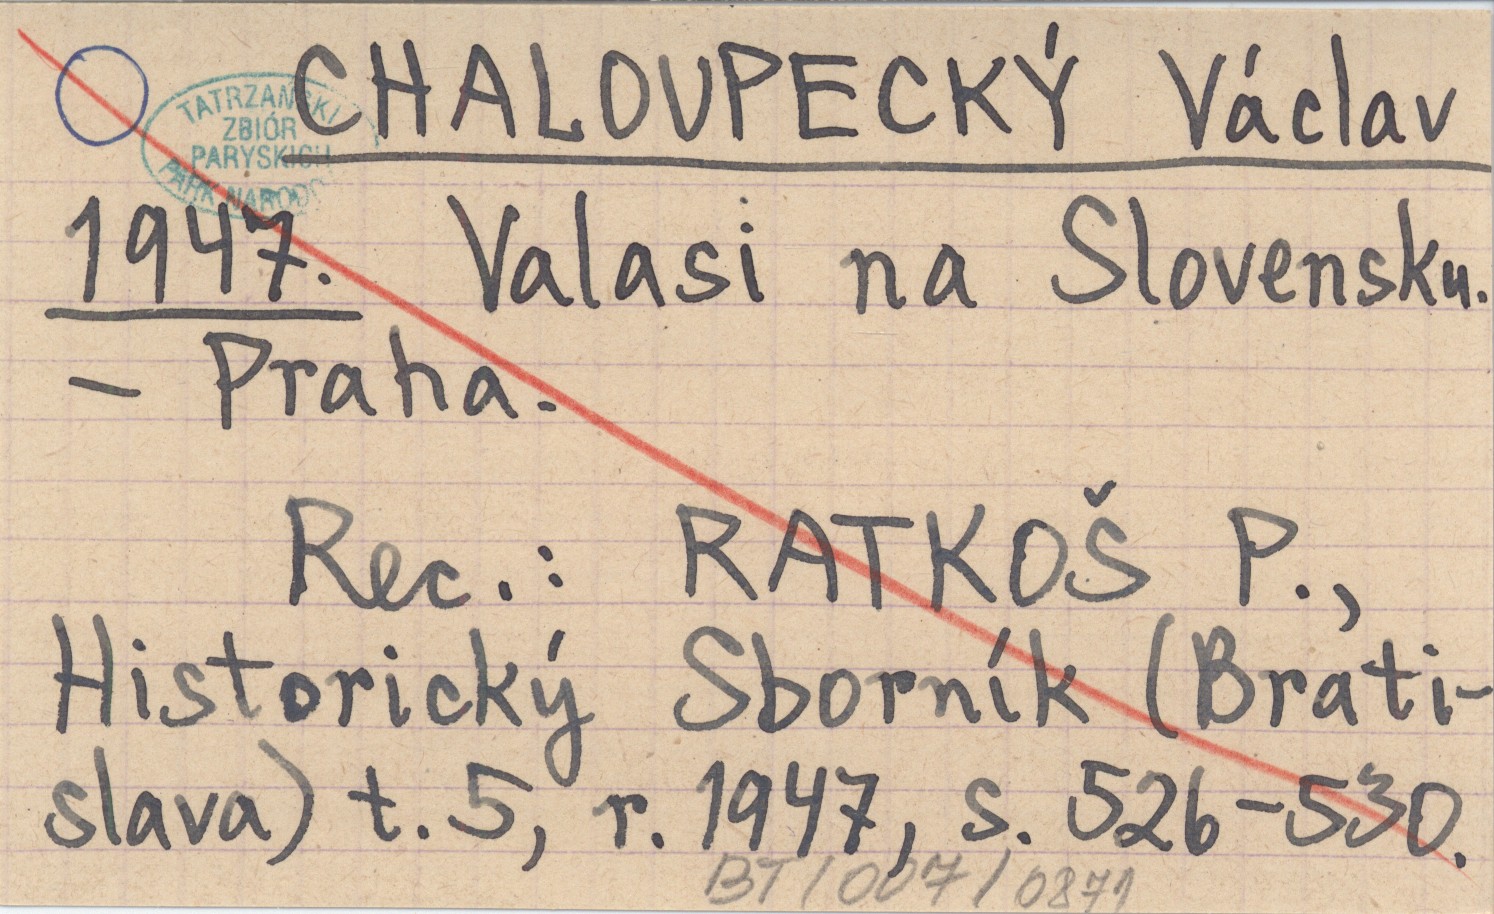 CHALOUPECKÝ Václav
TATRZAŃSKI
ZBIÓR
PARYSKICH
PARK NARODO
1947. Valasi na Slovensku.
– Praha.
Rec.: RATKOŠ P.,
Historický Sborník (Brati-
slava) t. 5, r. 1947, s. 526–530.
BT/007/0871